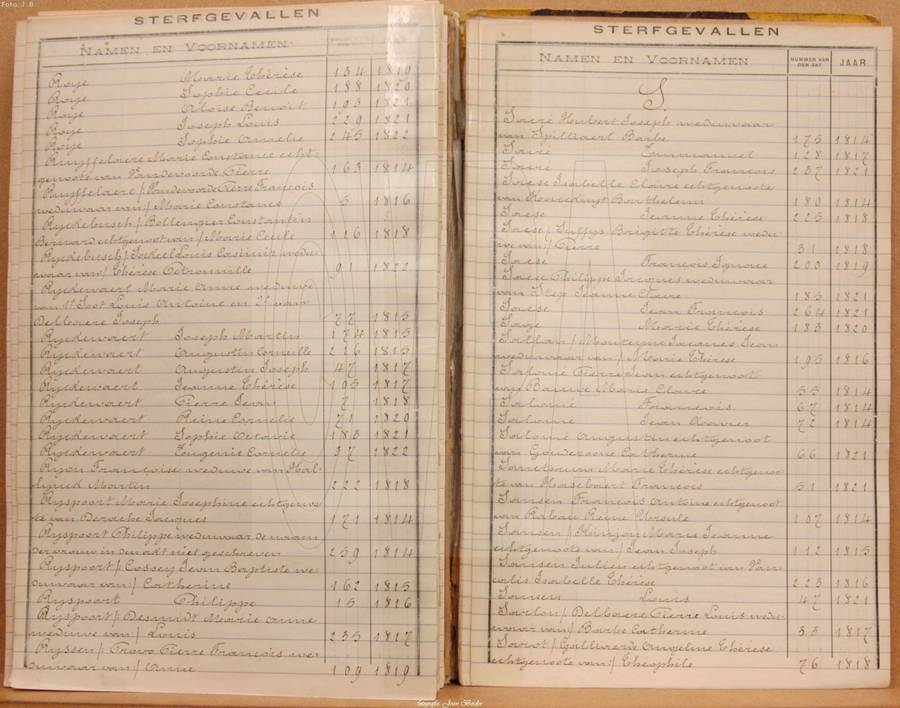 Foto. J. B
STERFGEVALLEN
NAMEN EN VOORNAMEN
Roye Marie Thérèse 134 1819
Roye Sophie Cecile 188 1820
Roye Aloïse Benoit 193 1821
Roye Joseph Louis 229 1821
Roye Sophie Amelie 245 1822
Ruyffelaere Marie Constance echt-
genoote van Vandevoorde Pierre 163 1814
Ruyffelaere / Vandevoorde Pierre François
weduwaar van / Marie Constance 5 1816
Ryckebusch / Bollengier Constantin
Bernard echtgenoot van / Marie Cecile 116 1818
Ryckebusch / Louis Casimir wedu-
waar van / Thérèse Petronille 91 1822
Ryckewaert Marie Anne weduwe
van 1° Soot Louis Antoine en 2° van
Delbaere Joseph 77 1813
Ryckewaert Joseph Martin 174 1815
Ryckewaert Augustin Corneille 216 1815
Ryckewaert Augustin Joseph 47 1817
Ryckewaert Jeanne Thérèse 193 1817
Ryckewaert Pierre Jean 7 1818
Ryckewaert Reine Cornelie 71 1820
Ryckewaert Sophie Octavie 183 1821
Ryckewaert Eugenie Cornelie 37 1822
Ryon Françoise weduwe van
Martin 222 1818
Ryspoort Marie Josephine echtgenoo-
te van Jacques 171 1814
Ryspoort Philippe weduwaar de naam
der vrouw in den akt niet geschreven 259 1814
Ryspoort / Cossey Jean Baptiste we-
duwaar van / Catherine 162 1815
Ryspoort Philippe 15 1816
Ryspoort / Desmidt Marie Anne
weduwe van / Louis 235 1817
Ryssen / Pierre François we-
duwaar van / Anne 109 1819
STERFGEVALLEN
NAMEN EN VOORNAMEN NUMMER VAN DEN AKT JAAR
S
Hubert Joseph weduwaar
van Spillaert Barbe 175 1814
Emmanuel 128 1817
Joseph François 237 1821
Saese Isabelle Claire echtgenoote
van Barthelemi 180 1814
Saese Jeanne Thérèse 225 1818
Saese / Brigitte Thérèse wedu-
we van / Pierre 31 1818
Saese François Ignace 200 1819
Saese Philippe Jacques weduwaar
van Jeanne Claire 185 1821
Saese Jean François 264 1821
Marie Thérèse 183 1820
Jacques Jean
weduwaar van / Marie Thérèse 195 1816
Salomé Pierre Jean echtgenoot
van Marie Claire 55 1814
Salomé François 67 1814
Salomé Jean Xavier 72 1814
Salomé Augustin echtgenoot
van Catherine 66 1821
Marie Thérèse echtgenoo-
te van François 51 1821
Sansen François Antoine echtgenoot
van Reine Ursule 107 1814
Sansen / Marie Jeanne
echtgenoote van / Jean Joseph 112 1815
Sansen Julien echtgenoot van Van-
Isabelle Thérèse 223 1816
Sansen Louis 47 1821
/ Delbaere Pierre Louis wedu-
waar van / Barbe Catherine 33 1817
Angeline Thérèse
echtgenoote van / Théophile 76 1818